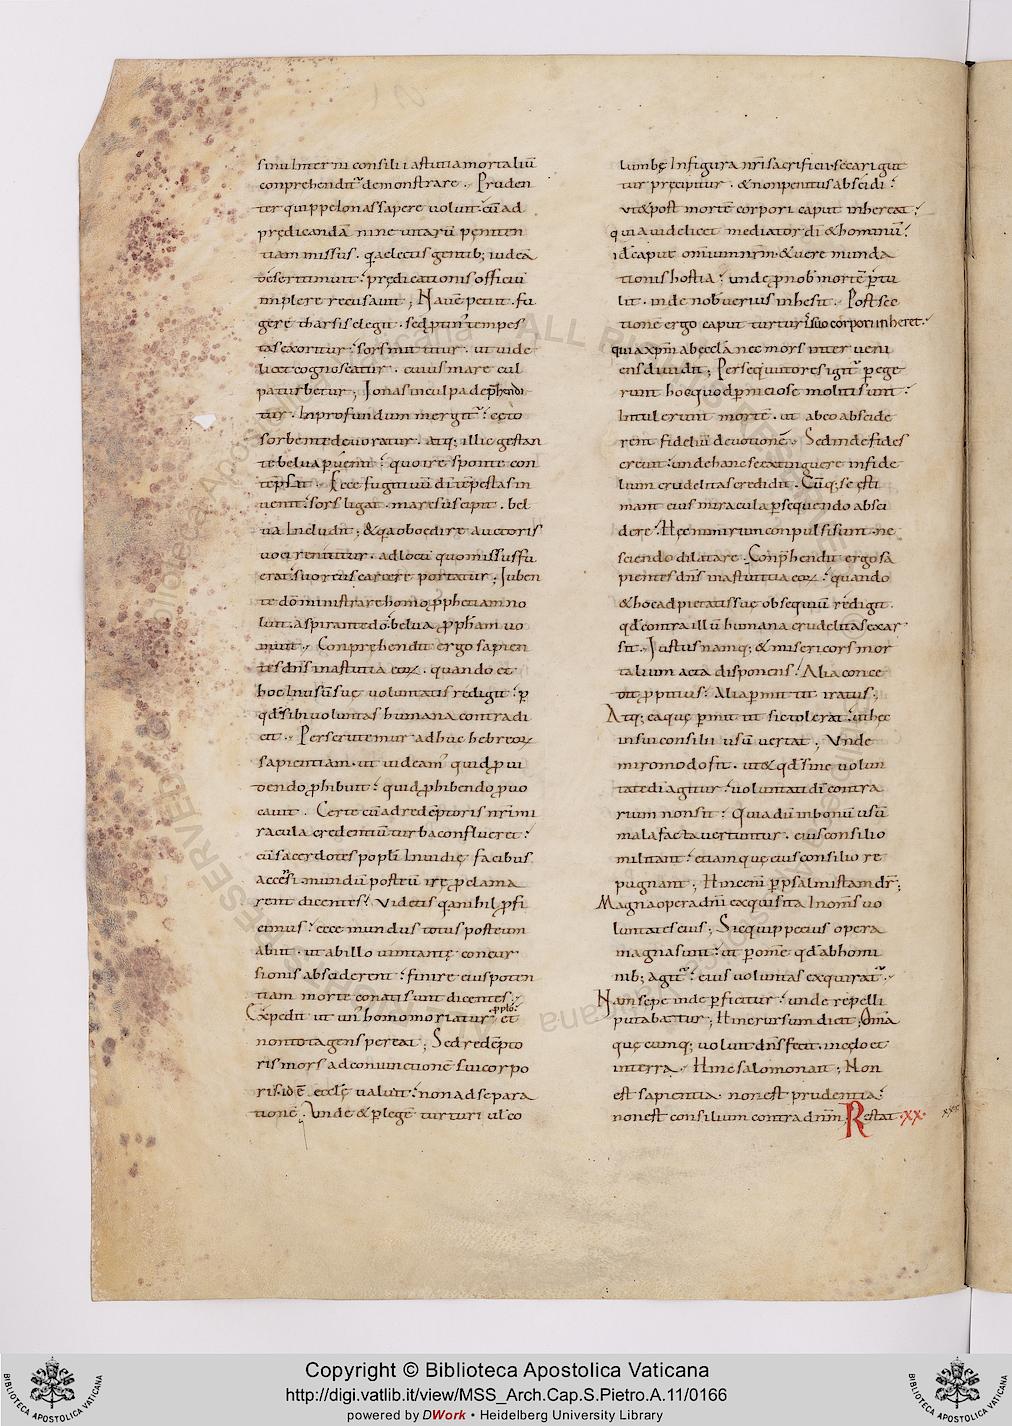 sinu Interni consilii astutia mortaliū
conprehendit᷑ demonstrare. Pruden
ter quippe Ionas sapere uoluit. cū ad
prędicandā niniuitarū peniten
tiam missus. qa electis gentib; iudea
deseri timuit. prędicationis officiū
implere recusauit; Nauē petiit. fu
gere tharsis elegit. sed ptin᷑ tempes
tas exoritur. sors mittitur. ut uide
licet cognoscatur. cuius mare cul
pa turbetur; Ionas in culpa dep̄hendi
tur. In profundum mergit᷑. ceto
sorbente deuoratur. atq; illic gestan
te belua p̱uenit. quo ire sponte con
tēpsit. Ecce fugitiuū dī tēpestas in
uenit. sors ligat. mare suscipit. bel
ua Includit; & qa oboedire auctoris
uoci renititur. ad locū quo missus fu
erat. suo reus carcere portatur. Iuben
te dō ministrare homo pphetiam no
luit. aspirante dō belua pphām uo
muit. Conprehendit ergo sapien
tes dn̄s in astutia eoꝝ. quando et
hoc In usū suę uoluntatis redigit. p
qd sibi uoluntas humana contradi
cit. Perscrutemur adhuc hebreoꝝ
sapientiam. ut uideam᷑ quid p̱ui
dendo p̱hibuit. quid p̱hibendo p̱uo
cauit. Certe cū ad redēptoris nr̄i mi
racula credentiū turba conflueret.
cū sacerdotes popli Inuidię facibus
accēsi. mundū post eū ire p̱clama
rent dicentes. Videtis qa nihil p̱fi
cimus. ecce mundus totus post eum
abiit. ut ab illo uim tantę concur
sionis absciderent. finire eius poten
tiam morte conati sunt dicentes.
Expedit ut un᷑ homo moriatur p pplo. et
non tota gens pereat; Sed redēpto
ris mors ad coniunctionē sui corpo
ris. id ē ecclę ualuit. non ad separa
tionē. Vnde & p legē turturi uel co
lumbę In figura nr̄i sacrificii. secari gut
tur pręcipitur. & non penitus abscidi.
ut & post mortē corpori caput inhereat.
quia uidelicet mediator dī & hominū.
id caput omniū nrm̄. & uere munda
tionis hostia. unde p̱ nob mortē ptu
lit. inde nob uerius inhesit. Post sec
tionē ergo caput turturis suo corpori inheret.
quia xp̄m ab ecclā nec mors interueni
ens diuidit; Persequutores igit᷑ pege
runt hoc quod p̱niciose moliti sunt.
Intulerunt mortē. ut ab eo abscide
rent fideliū deuotionē. Sed inde fides
creuit. unde hanc se extinguere infide
lium crudelitas credidit. Cūq; se ęsti
mant eius miracula p̱sequendo absci
dere. Hęc nimirum conpulsi sunt ne
sciendo dilatare. Conp̄hendit ergo sa
pientes dn̄s in astutia eoꝝ. quando
& hoc ad pietatis suę obsequiū redigit.
qd contra illū humana crudelitas exar
sit. Iustus namq; & misericors mor
talium acta disponens. Alia conce
dit p̱pitius. Alia p̱mittit iratus.
Atq; ea quę p̱mittit sic tolerat. ut hęc
in sui consilii usū uertat; Vnde
miro modo fit. ut & qd sine uolun
tate dī agitur. uoluntati dī contra
rium non sit. Quia dū in bonū usū
mala facta uertuntur. eius consilio
militant. etiam quę eius consilio re
pugnant; Hinc eni p̱ psalmistam dr̄;
Magna opera dn̄i exquisita In om̄s uo
luntates eius; Sic quippe eius opera
magna sunt. ut p̱ om̄e qd ab homi
nib; agit᷑. eius uoluntas exquirat᷑.
Nam sepe inde p̱ficitur. unde repelli
putabatur; Hinc rursum dicit; Om̄a
quę cumq; uoluit dn̄s fecit. in cęlo et
in terra. Hinc salomon ait; Non
est sapientia. non est prudentia.
non est consilium contra dnm̄; Restat .XX.
Copyright © Biblioteca Apostolica Vaticana
http://digi.vatlib.it/view/MSS_Arch.Cap.S.Pietro.A.11/0166
powered by DWork • Heidelberg University Library
BIBLIOTECA APOSTOLICA VATICANA
BIBLIOTECA APOSTOLICA VATICANA